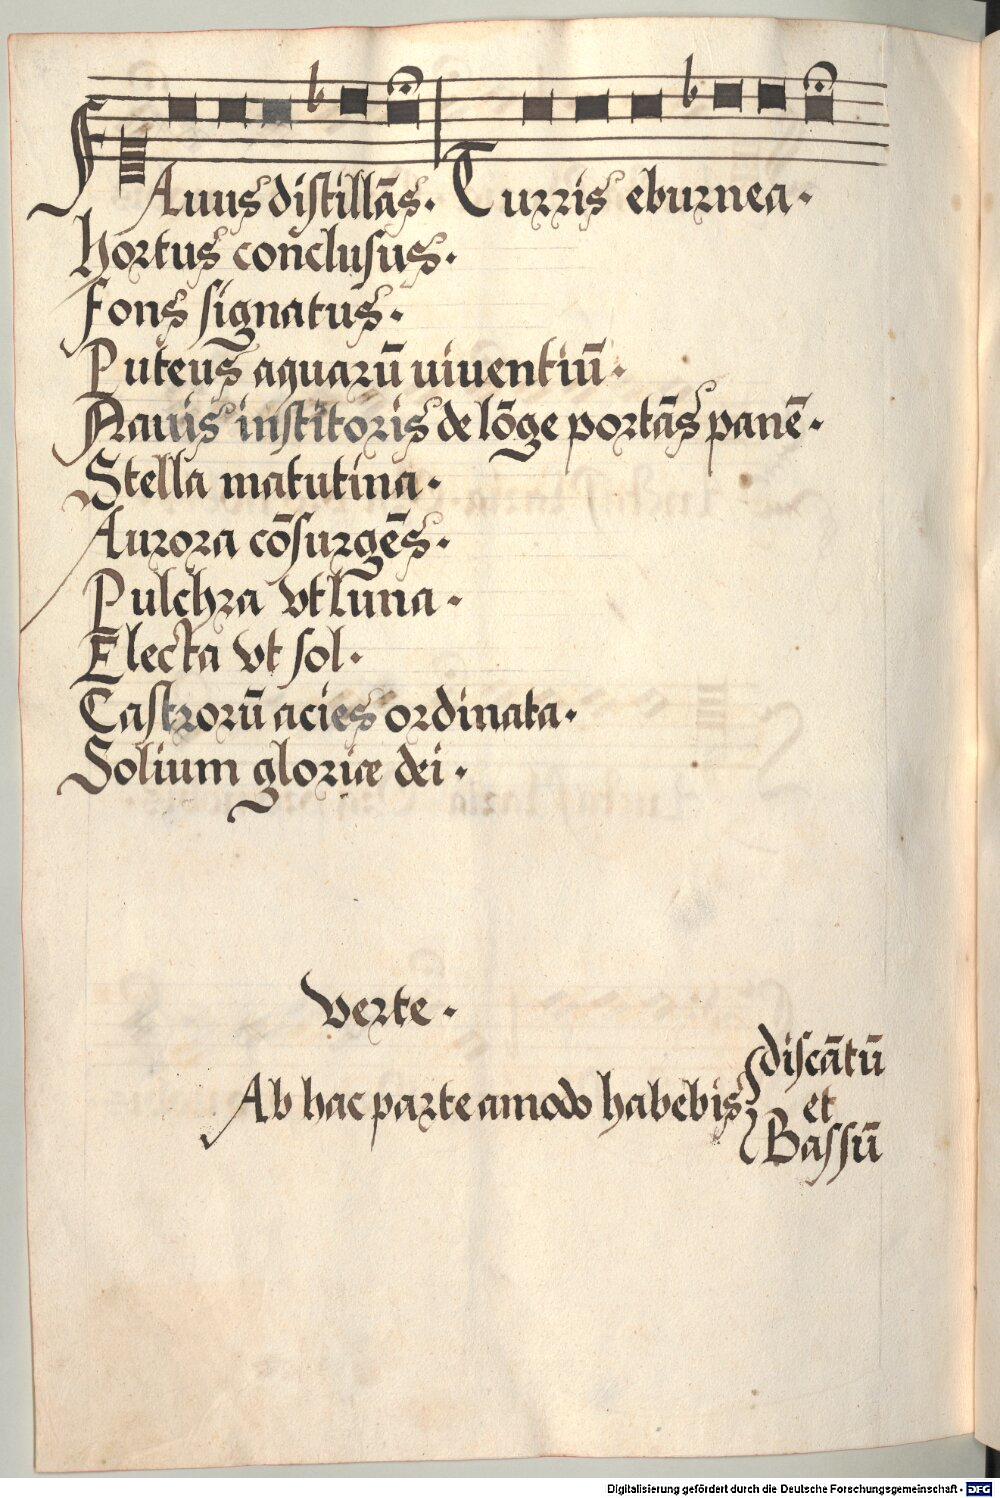 Fauus distillās. Turris eburnea.
hortus conclusus.
fons signatus.
Puteus aquarū uiuentiū.
Nauis institoris de lōge portās panē.
Stella matutina.
Aurora cōsurgēs.
Pulchra vt luna.
Electa vt sol.
Castrorū acies ordinata.
Solium gloriæ dei.
verte.
Ab hac parte amodo habebis discātū
et
Bassū
Digitalisierung gefördert durch die Deutsche Forschungsgemeinschaft - DFG